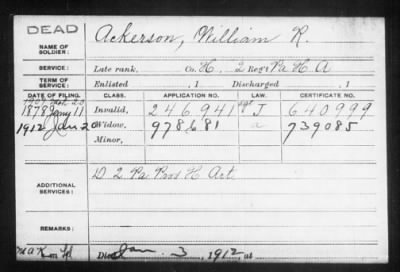 DEAD
NAME OF SOLDIER: Ackerson, William R.
SERVICE: Late rank, Co. H, 2 Reg't Pa H A
TERM OF SERVICE: Enlisted , 1 Discharged , 1
DATE OF FILING. CLASS. APPLICATION NO. LAW. CERTIFICATE NO.
1878 Jany 11 Invalid, 246941 J 640999
1912 Jan 2 Widow, 978681 a 739085
Minor,
ADDITIONAL SERVICES: D 2 Pa Prov H Art
REMARKS:
Died Jan. 3, 1912, at